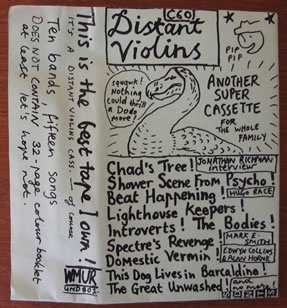 This is the best tape I own!
IT'S A DISTANT VIOLINS CASS. OF COURSE
Ten bands, fifteen songs
DOES NOT CONTAIN 32-page colour booklet
at least let's hope not.
WMUR
UND 801
C60
Distant
Violins
PIP
PIP!
squawk!
Nothing
could thrill
a Dodo
more!
ANOTHER
SUPER
CASSETTE
FOR
THE WHOLE
FAMILY
Chad's Tree!
JONATHAN RICHMAN
interview
Shower Scene From Psycho!
Beat Happening!
HUGO RACE
Lighthouse Keepers!
Introverts! The Bodies!
Spectre's Revenge!
MARK E.
SMITH
Domestic Vermin!
EDWYN COLLINS
& ALAN HORNE
This Dog Lives in Barcaldine!
The Great Unwashed!
and no more